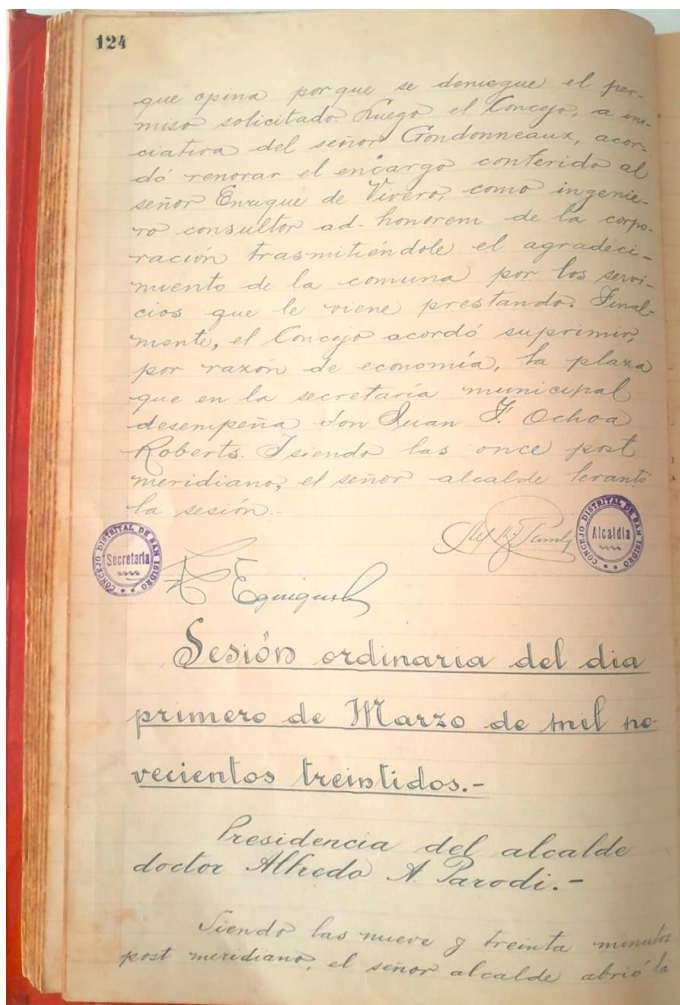 124
que opina porque se deniegue el per-
miso solicitado. Luego el Concejo, a ini-
ciativa del señor Gondonneaux, acor-
dó renovar el encargo conferido al
señor Enrique de Vivero, como ingenie-
ro consultor ad-honorem de la corpo-
ración trasmitiéndole el agradeci-
miento de la comuna por los servi-
cios que le viene prestando. Final-
mente, el Concejo acordó suprimir,
por razón de economía, la plaza
que en la secretaría municipal
desempeña don Juan F. Ochoa
Roberts. Isiendo las once post
meridiano, el señor alcalde levantó
la sesión.-
CONCEJO DISTRITAL DE SAN ISIDRO
Secretaría
CONCEJO DISTRITAL DE SAN ISIDRO
Alcaldía
Sesión ordinaria del dia
primero de Marzo de mil no-
vecientos treintidos.-
Presidencia del alcalde
doctor Alfredo A. Parodi.-
Siendo las nueve y treinta minutos
post meridiano, el señor alcalde abrió la